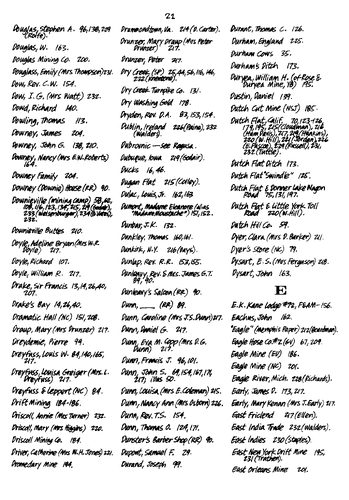 21
Douglas, Stephen A. 96, 138, 229
Douglas, W. 163.
Douglas Mining Co. 200.
Douglass, Emily (Mrs Thompson) 231.
Dow, Rev. C. W. 154.
Dow, I. G. (Mrs Watt) 232.
Dowd, Richard 140.
Dowling, Thomas 113.
Downey, James 204.
Downey, John G. 138, 220.
Downey, Nancy (Mrs E.W. Roberts)
164.
Downey Family 204.
Downey (Downie) House (RR) 90.
Downieville (mining camp)
232.
Downieville Buttes 210.
Doyle, Adeline Bryan (Mrs W.R.
Doyle) 217.
Doyle, Richard 107.
Doyle, William R. 217.
Drake, Sir Francis 13, 19, 26, 40,
207.
Drake's Bay 19, 26, 40.
Dramatic Hall (NC) 151, 208.
Draup, Mary (Mrs Drunzer) 217.
Dreydemie, Pierre 94.
Dreyfuss, Louis W. 84, 140, 165,
217.
Dreyfuss, Louisa Geiger (Mrs. L.
Dreyfuss) 217.
Dreyfuss & Leppert (NC) 84.
Drift Mining 184-186.
Driscoll, Annie (Mrs Tanner) 232.
Driscoll, Mary (Mrs Higgins) 220.
Driscoll Mining Co. 184.
Driver, Catherine (Mrs W.H. Jones) 221.
Dromedary Mine 194.
Drumontdown, Va. 219 (D. Carter).
Drunzer, Mary Draup (Mrs Peter
Drunzer) 217.
Drunzer, Peter 217.
Dry Creek (SP) 25, 44, 56, 116, 146,
Dry Creek Turnpike Co. 131.
Dry Washing Gold 178.
Dryden, Rev. D.A. 83, 153, 154.
Dublin, Ireland 226 (Paine), 232
(Walders).
Dubronic — See Ragusa.
Dubuque, Iowa 219 (Godair).
Ducks 16, 46.
Dugan Flat 215 (Colley).
Dulac, Louis, Jr. 162, 163
Dumont, Madame Eleanore (alias
"Madame Moustache") 151, 152.
Dunbar, J. K. 132.
Dunkley, Thomas 160, 161.
Dunkirk, N.Y. 216 (Keys).
Dunlap, Rev. R.R. 153, 155.
Dunlevy, Rev. & Mrs. James G.T.
89, 90.
Dunleavy's Saloon (RR) 90.
Dunn, ___ (RR) 89.
Dunn, Caroline (Mrs J.S. Dunn) 217.
Dunn, Daniel G. 217.
Dunn, Eva M. Gopp (Mrs D.G.
Dunn) 217.
Dunn, Francis J. 96, 101.
Dunn, John S. 69, 154, 167, 173,
217, illus 50.
Dunn, Louisa, (Mrs E. Coleman) 215.
Dunn, Nancy Ann (Mrs Osborn) 226.
Dunn, Rev. T.S. 154.
Dunn, Thomas D. 129, 171.
Dunster's Barber Shop (RR) 90.
Dupont, Samuel F. 29.
Durand, Joseph 99.
Durant, Thomas C. 126.
Durham, England 225.
Durham Cows 35.
Durham's Ditch 173.
Duryea, William H. (of Rose &
Duryea Mine, YB) 195.
Dustin, Daniel 139.
Dutch Cut Mine (NSJ) 185.
Dutch Flat, Calif. 70, 123, 126,
232 (Tuttle).
Dutch Flat Ditch 173.
Dutch Flat "Swindle" 125.
Dutch Flat & Donner Lake Wagon
Road 75, 131, 197.
Dutch Flat & Little York Toll
Road 220 (W. Hill).
Dutch Hill Co. 59.
Dyer, Clara (Mrs D. Barker) 211.
Dyer's Store (NC) 79.
Dysart, E.S. (Mrs Ferguson) 218.
Dysart, John 163.
E
E.K. Kane Lodge #72, F&AM — 156.
Eachus, John 162
"Eagle" (Memphis Paper) 212 (Boardman).
Eagle Hose Co #2 (GV) 67, 209.
Eagle Mine (ED) 186.
Eagle Mine (NC) 201.
Eagle River, Mich. 228 (Richards).
Early, James D. 173, 217.
Early, Mary Kenna (Mrs J. Early) 217.
East Friesland 217 (Ellen).
East India Trade 232 (Walders).
East Indies 230 (Staples).
East New York Drift Mine 195,
East Orleans Mine 201.